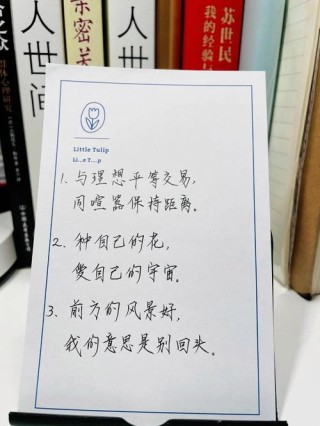 人世间
亲密关
人世间
苏世民
我的经验与
Little Tulip
Li...e T...p
1. 与理想平等交易,
同喧嚣保持距离。
2. 种自己的花,
爱自己的宇宙。
3. 前方的风景好,
我的意思是别回头。